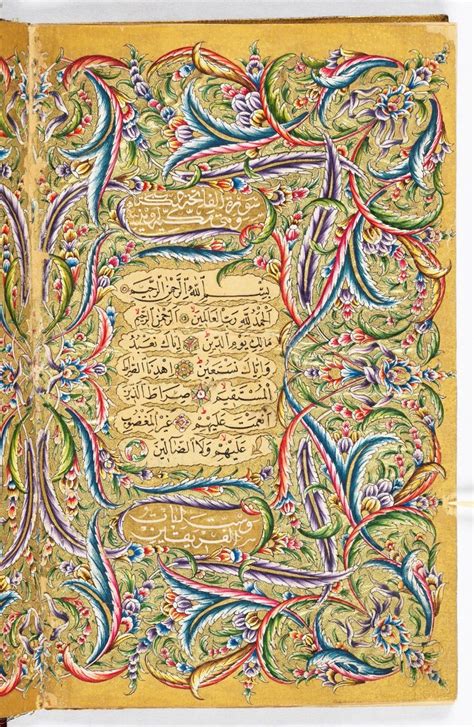 سُورَةُ الْفَاتِحَةِ
بِسْمِ اللّٰهِ الرَّحْمٰنِ الرَّحِيمِ
اَلْحَمْدُ لِلّٰهِ رَبِّ الْعَالَمِينَ الرَّحْمٰنِ الرَّحِيمِ
مَالِكِ يَوْمِ الدِّينِ اِيَّاكَ نَعْبُدُ
وَاِيَّاكَ نَسْتَعِينُ اِهْدِنَا الصِّرَاطَ
الْمُسْتَقِيمَ صِرَاطَ الَّذِينَ
اَنْعَمْتَ عَلَيْهِمْ غَيْرِ الْمَغْضُوبِ
عَلَيْهِمْ وَلَا الضَّالِّينَ